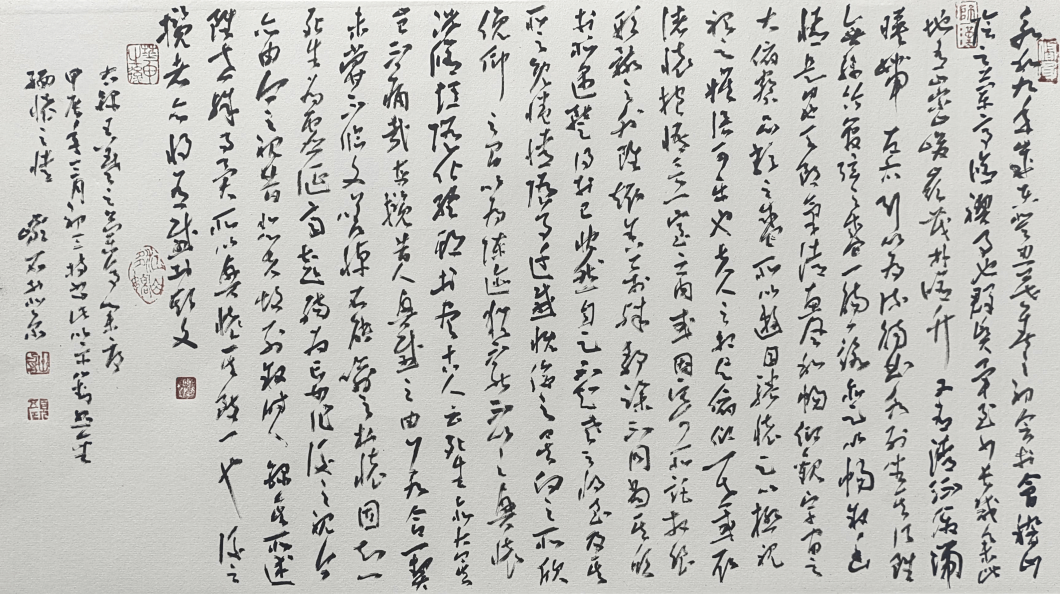 永和九年歲在癸丑暮春之初會于會稽山
陰之蘭亭脩禊事也群賢畢至少長咸集此
地有崇山峻嶺茂林脩竹又有清流激湍
映帶左右引以為流觴曲水列坐其次雖
無絲竹管弦之盛一觴一詠亦足以暢敘幽
情是日也天朗氣清惠風和暢仰觀宇宙之
大俯察品類之盛所以遊目騁懷足以極視
聽之娛信可樂也夫人之相與俯仰一世或取
諸懷抱悟言一室之内或因寄所託放浪
形骸之外雖趣舍萬殊靜躁不同當其欣
於所遇暫得於己快然自足不知老之將至及其
所之既倦情隨事遷感慨係之矣向之所欣
俛仰之間以為陳迹猶不能不以之興懷
況脩短隨化終期於盡古人云死生亦大矣
豈不痛哉每攬昔人興感之由若合一契
未嘗不臨文嗟悼不能喻之於懷固知一
死生為虛誕齊彭殤為妄作後之視今
亦由今之視昔悲夫故列敘時人錄其所述
雖世殊事異所以興懷其致一也後之
攬者亦將有感於斯文
右錄王羲之之蘭亭序
甲辰年三月初三特書此以示
緬懷之情